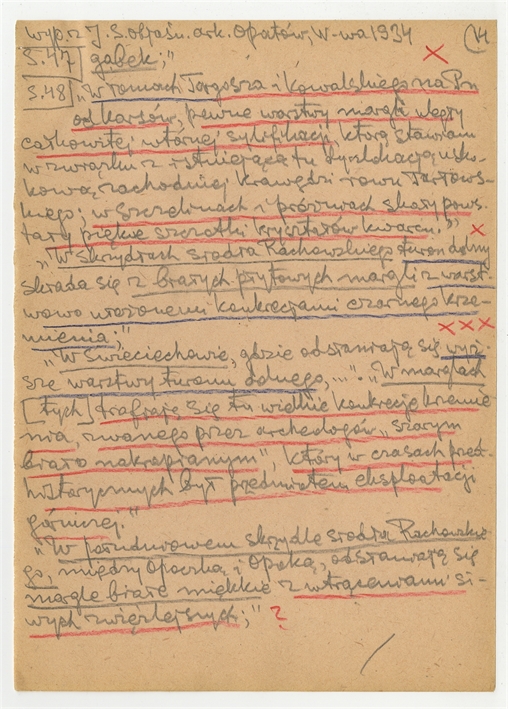 wyp. z J. S. objaśn. ark. Opatów, W-wa 1934 14
S.47] gąbek;"
S.48] „W łomach Targosza i Kowalskiego na Pn
od Karsów, pewne warstwy margli uległy
całkowitej wtórnej sylifikacji, którą stawiam
w związku z istniejącą tu dyslokacją usko-
kową, zachodniej krawędzi rowu Tarłows-
kiego; w szczelinach i próżniach skały pows-
tały piękne szczotki kryształów kwarcu."
„W skrzydłach siodła Rachowskiego turon dolny
składa się z białych płytowych margli z warst-
wowo ułożonemi konkrecjami czarnego krze-
mienia;"
„W Świeciechowie, gdzie odsłaniają się wyż-
sze warstwy turonu dolnego, ..." „W marglach
[tych] trafiają się tu wielkie konkrecje krzemie-
nia, zwanego przez archeologów „szarym
biało nakrapianym", który w czasach przed-
historycznych był przedmiotem eksploatacji
górniczej."
„W południowem skrzydle siodła Rachowskie-
go, między Opoczką i Opoką, odsłaniają się
margle białe miękkie z wtrąceniami si-
wych zwięźlejszych;" ?